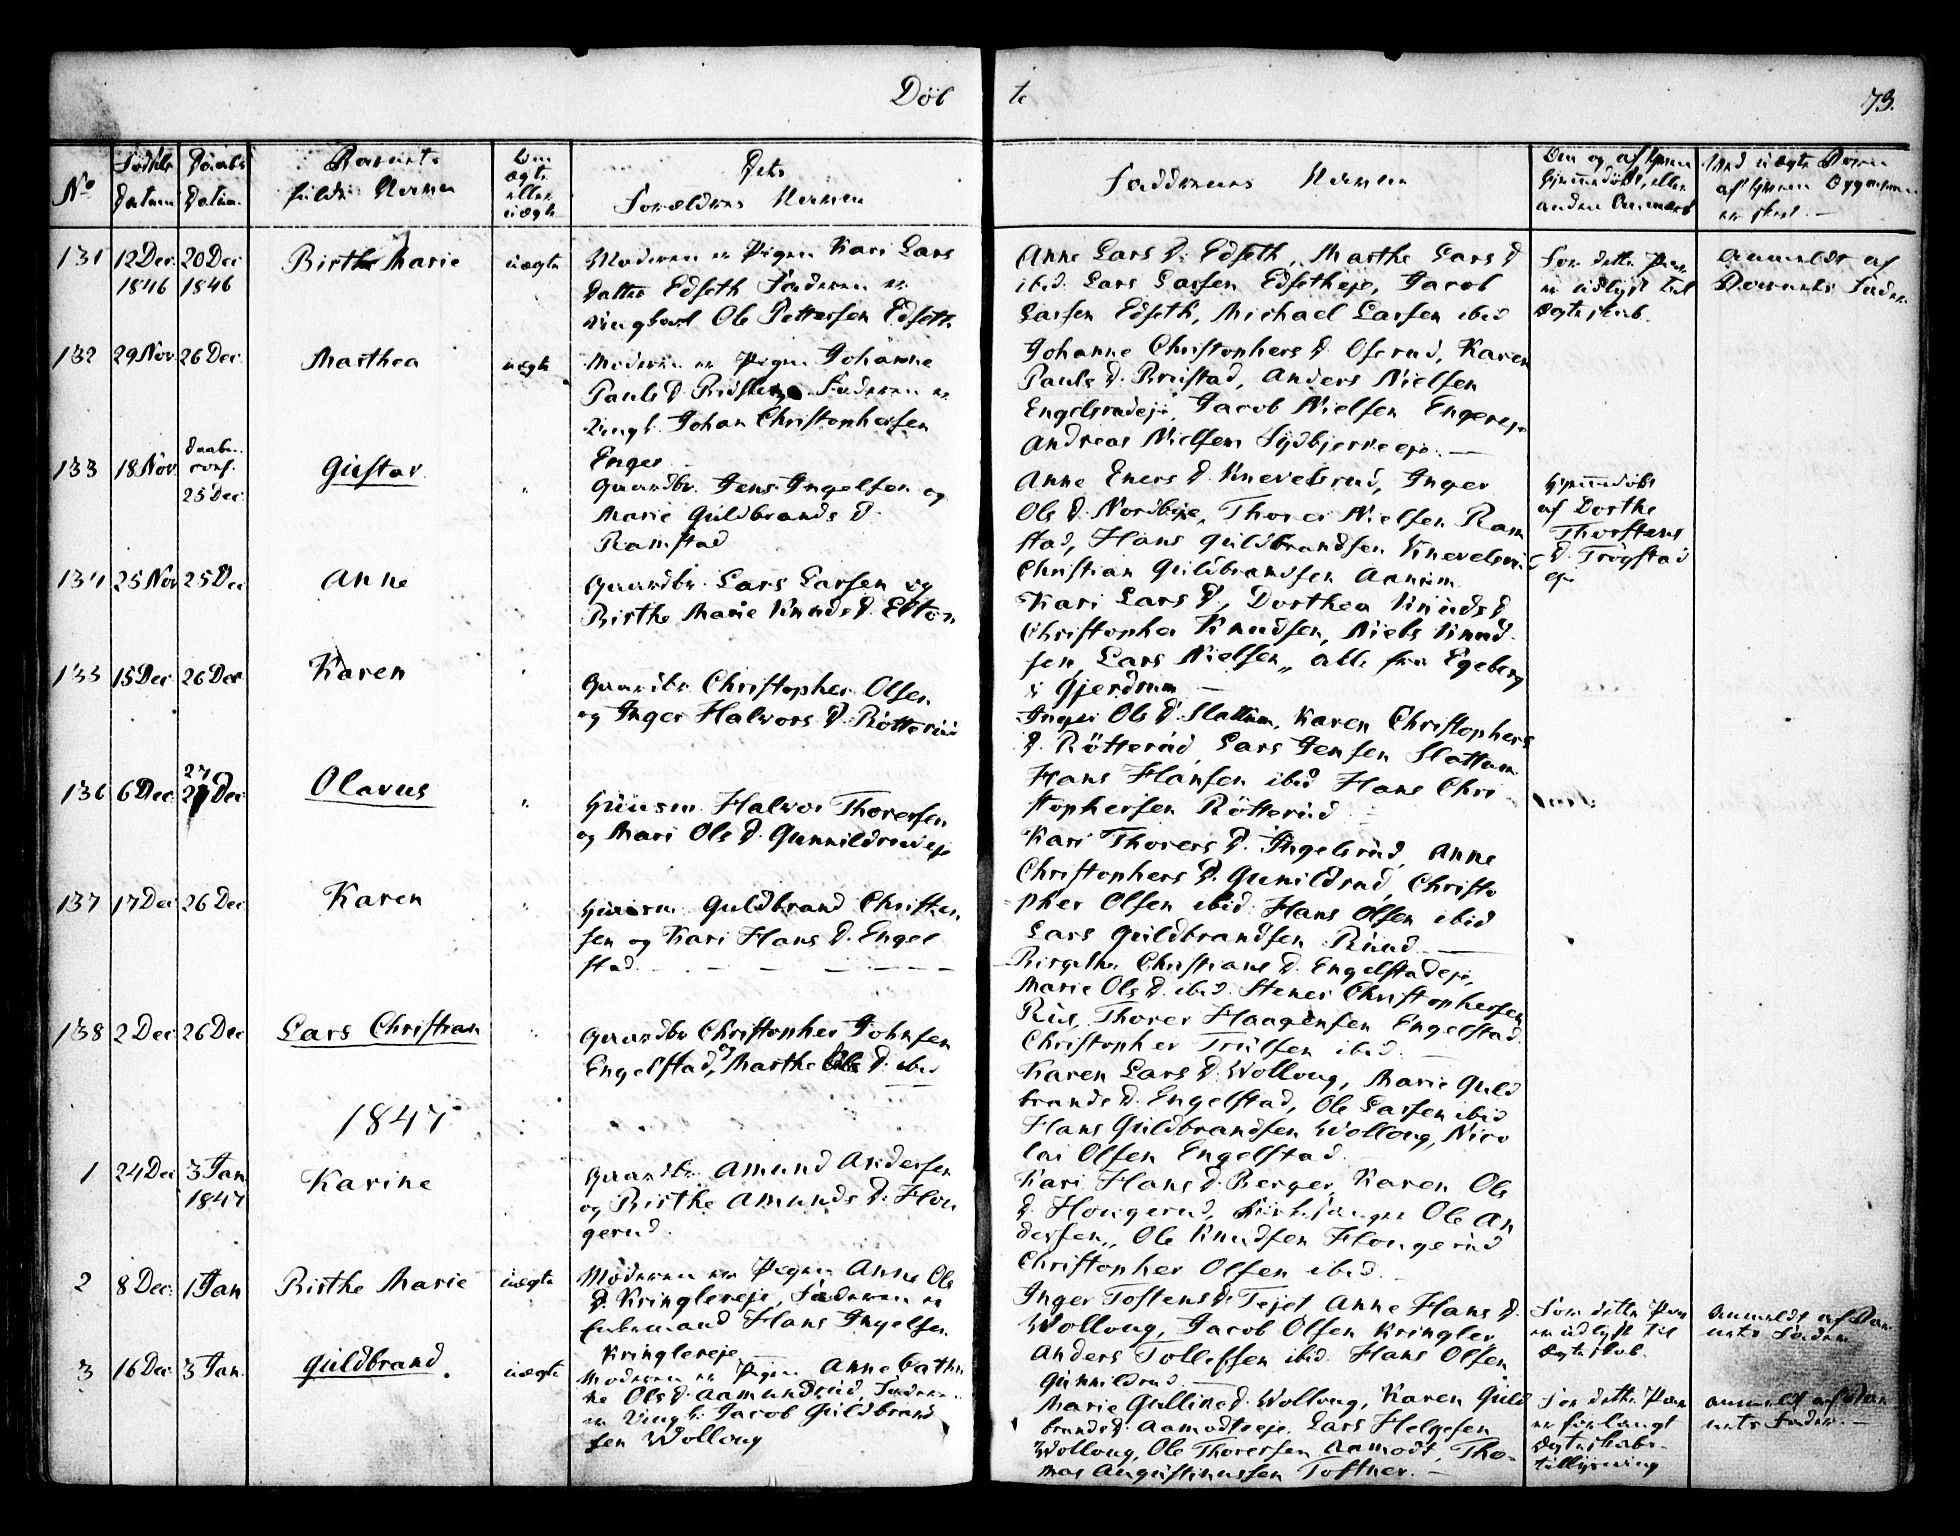 Døb
te
73.
No
Fødsels
Datum
Daabs
Datum
Barnets
fulde Navn
Om
ægte
eller
uægte
Dets
Forældres Navne
Faddernes Navne
Om og af hvem
hjemmedøbt, eller
andre Anmærk
Ved uægte Børn
af hvem Opgivelsen
er skeet. —
131 12 Dec 1846
20 Dec 1846
Birthe Marie
uægte
Moderen er Pigen Kari Lars
Datter Edseth Faderen er
Ungkarl Ole Pettersen Edseth
Anne Lars D. Edseth, Marthe Lars D
ibid. Lars Larsen Edsetheje, Jacob
Larsen Edseth, Michael Larsen ibid
For dette Par
er udlyst til
Ægteskab.
Anmeldt af
Barnets Fader
132 29 Nov. 26 Dec.
Marthea
uægte
Moderen er Pigen Johanne
Pauls D. Faderen er
Ungk. Johan Christophersen
Enger
Johanne Christophers D. Ofsrud, Karen
Pauls D. Brustad, Anders Nielsen
Engelsrudeje, Jacob Nielsen Engereje
Andreas Nielsen Sydbjerkeeje. —
133 18 Nov.
Daaben
conf.
25 Dec.
Gustav
"
Gaardbr. Jens Ingelsen og
Marie Guldbrands D.
Ramstad
Anne Eners D. Knevelsrud, Inger
Ols D. Nordbyeje, Thorer Nielsen Ram
stad, Hans Guldbrandsen Knevelsrud
Christian Guldbrandsen
Hjemmedøbt
af Dorthe
Thorstens
D. Trøgstad
eje
134 25 Nov 25 Dec
Anne
Gaardbr. Lars Larsen og
Birthe Marie Knuds D. Elton
Kari Lars D, Dorthea Knuds D
Christopher Knudsen, Niels Knud
sen, Lars Nielsen, alle fra Egeberg
i Gjerdrum —
135 15 Dec 26 Dec
Karen
"
Gaardbr Christopher Olsen
og Inger Halvors D. Rötterud
Inger Ols D. Slattum, Karen Christophers
D. Rötterud, Lars Jensen Slattum
Hans Hansen ibid Hans Chri
stophersen Rötterud
136 6 Dec 27 Dec
Olavus
"
Huusm. Halvor Thoresen
og Mari Ols D. Gunnildrudeje
Kari Thorers D. Ingelsrud, Anne
Christophers D. Gunildrud, Christo
pher Olsen ibid. Hans Olsen ibid
Lars Guldbrandsen Ruud —
137 17 Dec 26 Dec
Karen
"
Huusm. Guldbrand Christian
sen og Kari Hans D. Engel
stad. — — — — —
Birgithe Christians D. Engelstadeje,
Marie Ols D. ibid. Stener Christophersen
Rus, Thorer Haagensen Engelstad
Christopher Trulsen ibid. —
138 2 Dec 26 Dec
Lars Christian
"
Gaardbr Christopher Johnsen
Engelstad, og Marthe Ols D. ibid
Karen Lars D. Wolloug, Marie Guld
brands D. Engelstad, Ole Larsen ibid
Hans Guldbrandsen Wolloug, Nico
lai Olsen Engelstad.
1847
1 24 Dec 3 Jan 1847
Karine
Gaardbr. Amund Andersen
og Birthe Amunds D. Hou
gerud.
Kari Hans D. Berger, Karen Ols
D. Hougerud, Kirkesanger Ole An
dersen, Ole Knudsen Hougerud
Christopher Olsen ibid.
2 8 Dec. 1 Jan
Birthe Marie
uægte
Moderen er Pigen Anne Ols
D. Kringlereje, Faderen er
Enkemand Hans Ingelsen
Kringlereje —
Inger Tostens D. Tejet, Anne Hans D.
Wolloug, Jacob Olsen Kringler,
Anders Tollefsen ibid. Hans Olsen
Gunnildrud. —
For dette Par
er udlyst til
Ægteskab.
Anmeldt af Bar
nets Fader
3 16 Dec 3 Jan.
Guldbrand
uægte
Moderen er Pigen Anne Cathri
ne Ols D. Aamundrud, Faderen
er Ungk. Jacob Guldbrand
sen Wolloug
Marie Gulline D. Wolloug, Karen Guld
brands D. Aamodteeje, Lars Helgesen
Wolloug, Ole Thoresen Aamodt, Tho-
mas Augustinussen Toftner. —
For dette Par
er forlangt
Ægteskabs-
tillysning
Anmeldt af Bar
nets Fader. —